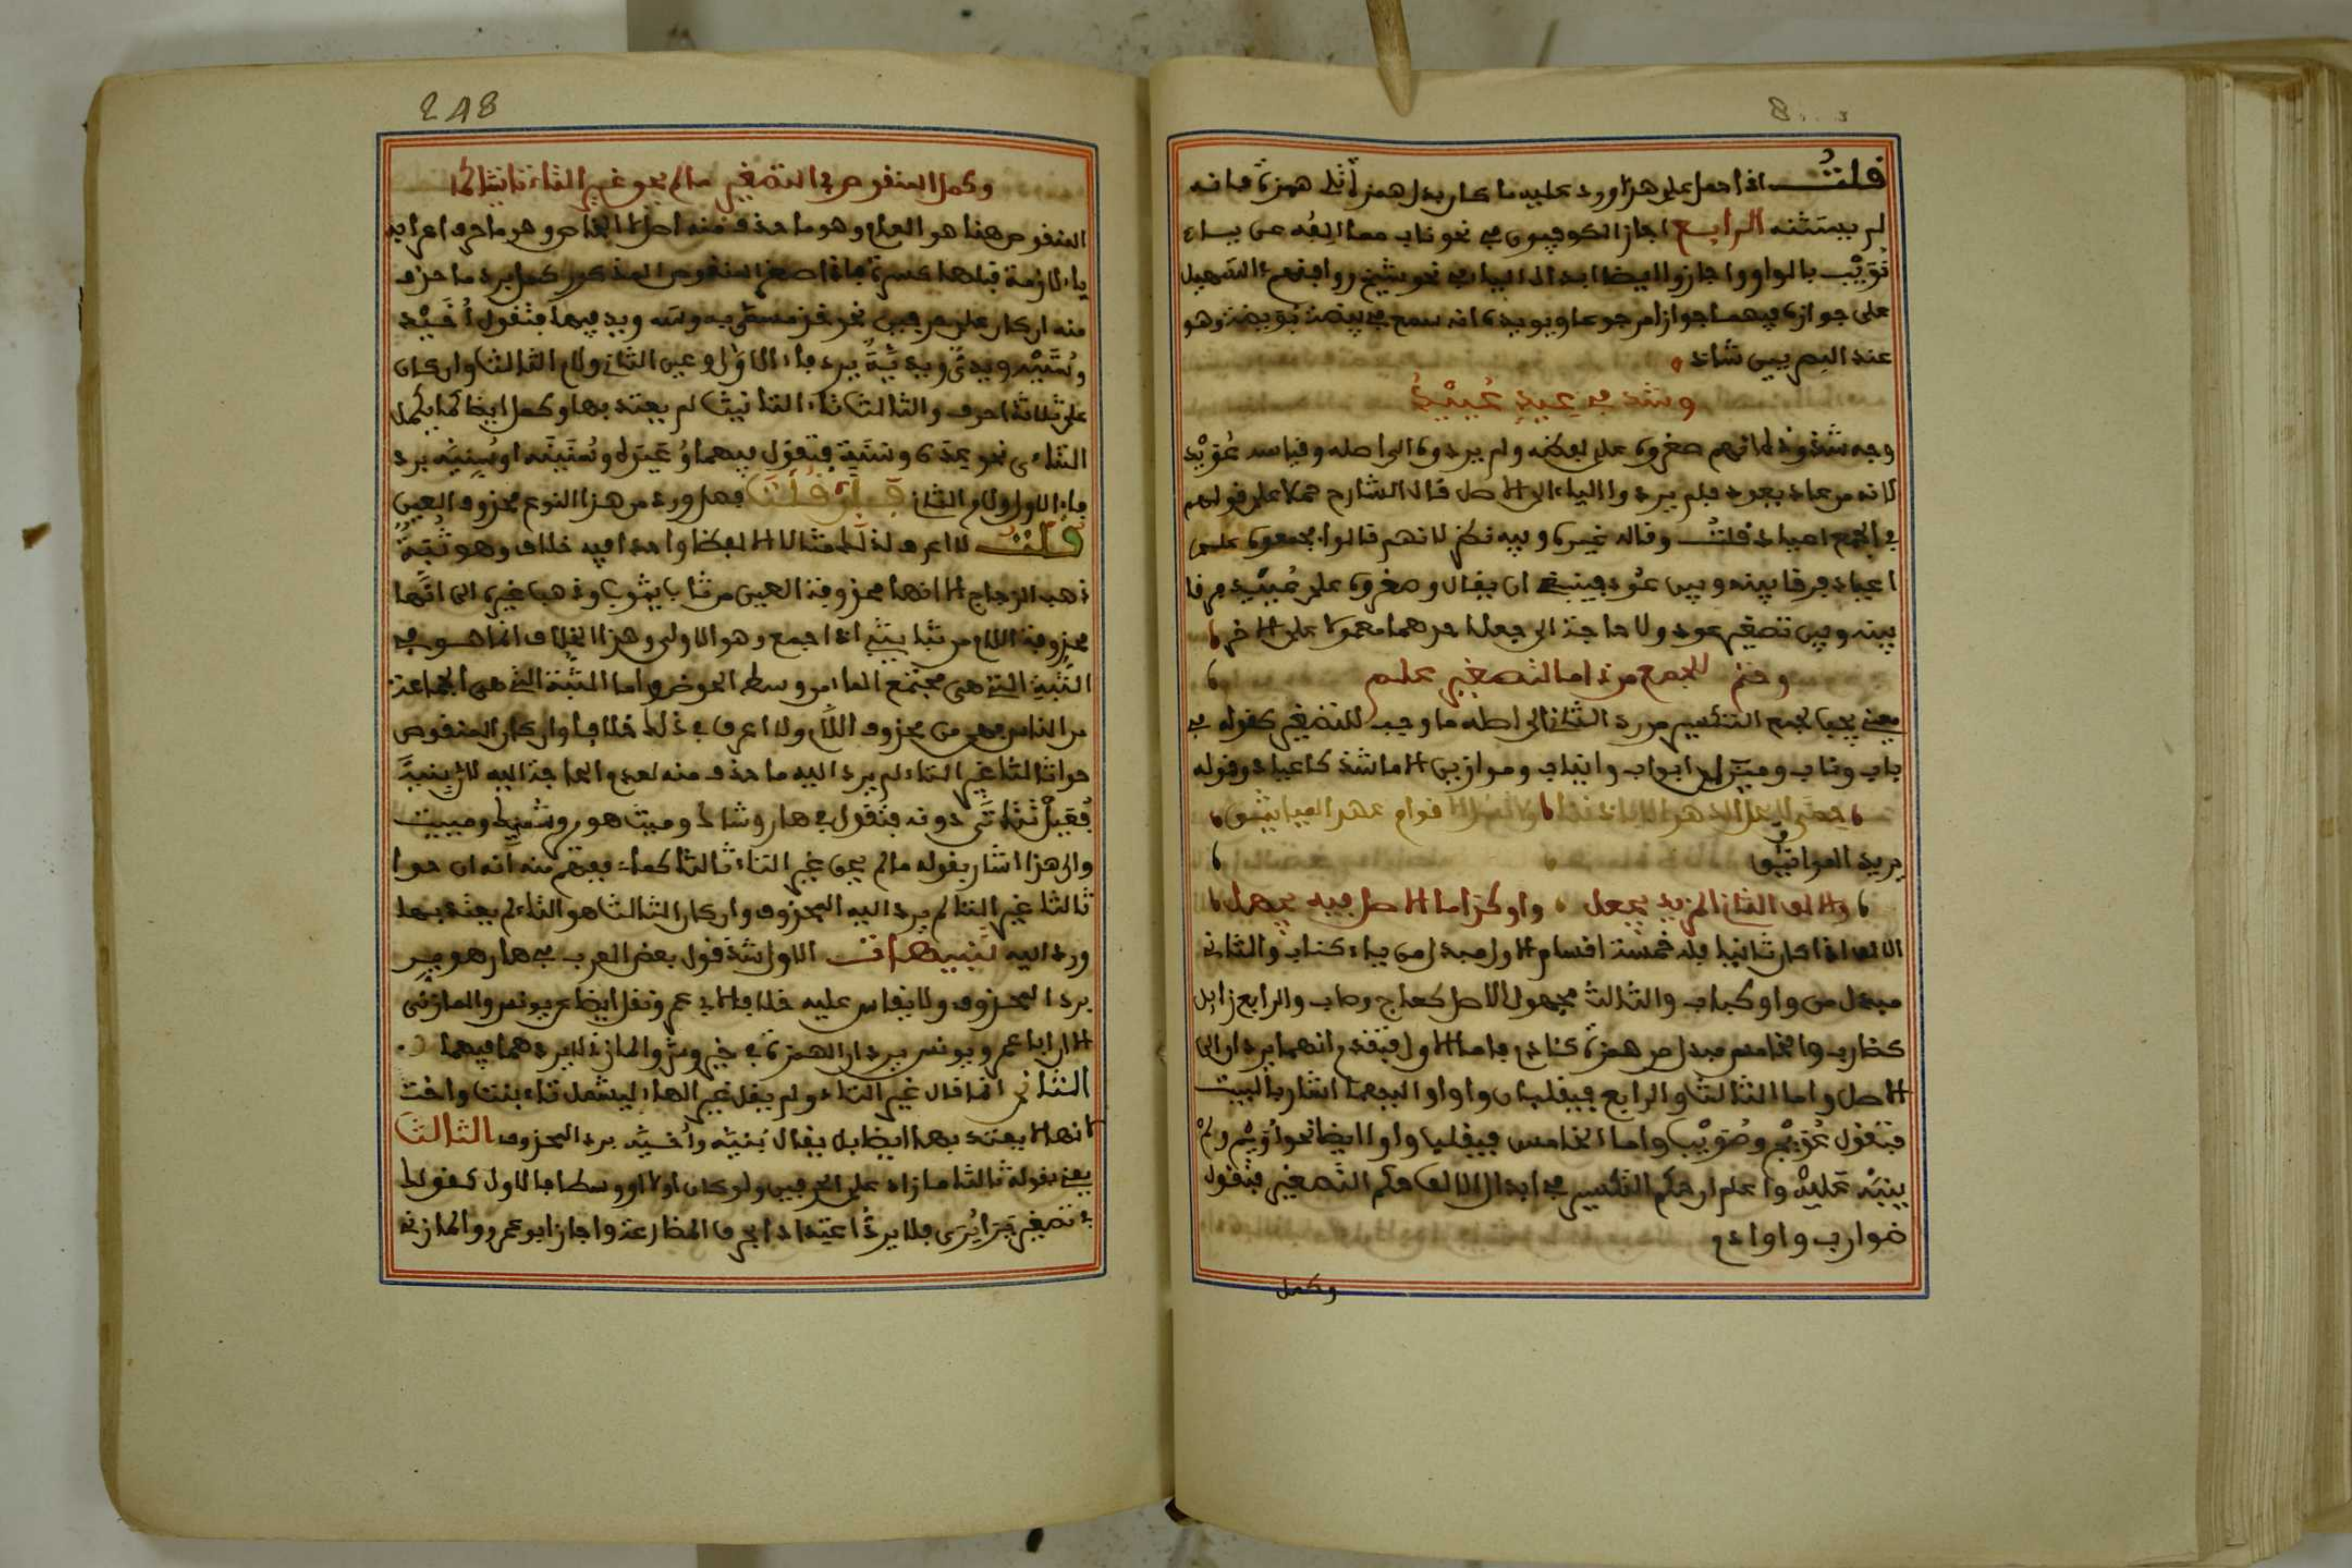 قلت اذا حمل على هذا ورد عليه ما كان بدل همزة تلي همزة فانه
لم يستثنه الرابع اجاز الكوفيون في نحو ناب مما الفه عن ياء
نويب بالواو واجازوا ايضا ابدال الياء في نحو شيخ ووافقهم في التسهيل
على جوازه فيهما جوازا مرجوحا ويويده انه سمع في بيضة بويضة وهو
عند البصريين شاذ
وشذ في عيد عييد
وجه شذوذه انهم صغروه على لفظه ولم يردوه الى اصله وقياسه عويد
لانه من عاد يعود فلم يردوا الياء الى الاصل قال الشارح حملا على قولهم
في الجمع اعياد قلت وقاله غيره وفيه نظر لانهم قالوا جمعوه على
اعياد فرقا بينه وبين عود فينبغي ان يقال وصغروه على عييد فرقا
بينه وبين تصغير عود ولا حاجة الى جعل احدهما محمولا على الاخر
وحتم للجمع من ذا ما لتصغير علم
يعني يجب لجمع التكسير من رد الثاني الى اصله ما وجب للتصغير كقوله في
باب وناب وميزان ابواب وانياب وموازين الا ما شذ كاعياد وقوله
حمى لا يحل الدهر الا باذننا ولا نسل الاقوام عهد المياثق
يريد المواثق
والالف الثاني المزيد يجعل واوا كذا ما الاصل فيه يجهل
الالف اذا كان ثانيا فله خمسة اقسام الاول مبدل من ياء كناب والثاني
مبدل من واو كباب والثالث مجهول الاصل كعاج وصاب والرابع زايد
كضارب والخامس مبدل من همزة كئادم فاما الاول فتقدم انهما يردان الى
الاصل واما الثالث والرابع فيقلبان واوا واليهما اشار بالبيت
فتقول عويج وصويب واما الخامس فيقلب واوا ايضا نحو اويدم ولم
ينبه عليه واعلم ان حكم التكسير في ابدال الالف حكم التصغير فتقول
ضوارب واوادم
وكمل
248
وكمل المنقوص في التصغير ما لم يحو غير التاء ثالثا كما
المنقوص هنا هو العام وهو ما حذف منه اصل لا الخاص وهو ما حرف اعرابه
ياء لازمة قبلها كسرة فاذا صغر المنقوص المذكور كمل برد ما حذف
منه ان كان على حرفين نحو خذ مسمى به وسه ويد فيهما فتقول اخيذ
وستيه ويدية برد فاء الاول وعين الثاني ولام الثالث وان كان
على ثلاثة احرف والثالث تاء التانيث لم يعتد بها وكمل ايضا كما يكمل
الثناءى نحو عدة وسنة فتقول فيهما وعيدة وسنية او سنيهة برد
فاء الاول ولام الثاني فان قلت فهل ورد من هذا النوع محذوف العين
قلت لا اعرف لذلك مثالا الا لفظا واحدا فيه خلاف وهو ثبة
ذهب الزجاج الا انها محذوفة العين من ثاب يثوب وذهب غيره الى انها
محذوفة اللام من ثبا يثبي اذا جمع وهو الاولى وهذا الخلاف انما هو في
الثبة التي هي مجتمع الماء من وسط الحوض واما الثبة التي هي الجماعة
من الناس فهي من محذوف اللام ولا اعرف في ذلك خلافا وان كان المنقوص
حوا ثالثا غير التاء لم يرد اليه ما حذف منه لعدم الحاجة اليه لان بنية
فعيل تتاتى دونه فتقول في هار وشاك وميت هوير وشويك ومييت
والى هذا اشار بقوله ما لم يحو غير التاء ثالثا كماء ففهم منه انه ان حوا
ثالثا غير التاء لم يرد اليه المحذوف وان كان الثالث هو التاء لم يعتد بها
ورد اليه تنبيهات الاول شذ قول بعض العرب في هار هوير
برد المحذوف ولا يقاس عليه خلافا لابي عمرو ونقل ايضا عن يونس والمازني
الا ان ابا عمرو ويونس يردان الهمزة في خير وشر والمازني لا يردهما فيهما
الثاني انما قال غير التاء ولم يقل غير الهاء ليشمل تاء بنت واخت
فانها لا يعتد بها ايضا بل يقال بنية واخية برد المحذوف الثالث
يعني بقوله ثالثا ما زاد على الحرفين ولو كان اولا او وسطا فالاول كقولك
في تصغير يرى يرى فلا يرد اعتدادا بحرف المضارعة واجاز ابو عمرو والمازني